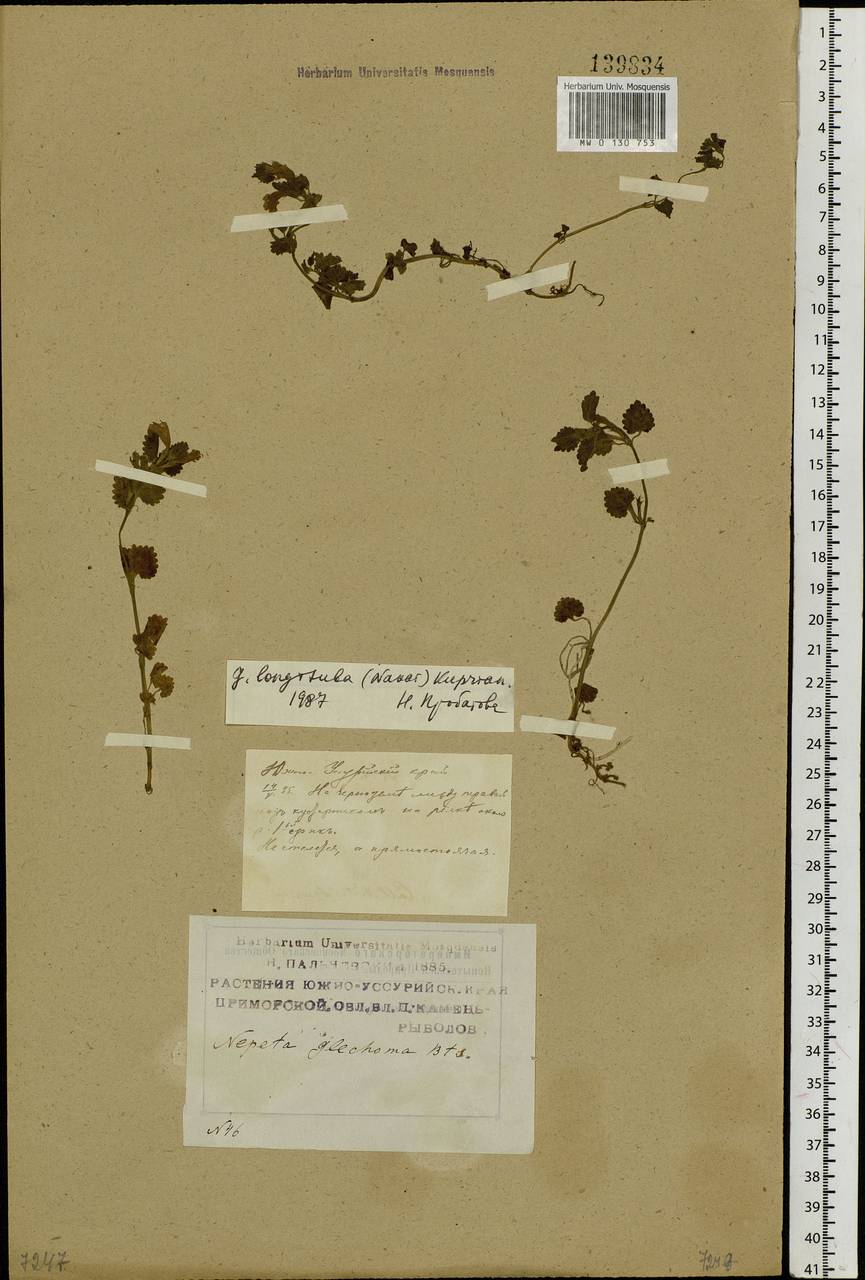 139834
Herbarium Universitatis Mosquensis
Herbarium Univ. Mosquensis
MW 0 130 753
G. longituba (Nakai) Kuprian.
1987 Н. Пробатова
Южно-Уссурійскій край
На черноземѣ между травой
подъ кустарникомъ на релкѣ около
Не стелется, а прямостоячая.
Herbarium Universitatis Mosquensis
Н. ПАЛЬЧЕВСКІЙ 1885.
РАСТЕНИЯ ЮЖНО-УССУРИЙСК. КРАЯ
ПРИМОРСКОЙ. ОБЛ. БЛ. П. КАМЕНЬ-
РЫБОЛОВ.
Nepeta glechoma Bth.
N46
7247
1
2
3
4
5
6
7
8
9
10
11
12
13
14
15
16
17
18
19
20
21
22
23
24
25
26
27
28
29
30
31
32
33
34
35
36
37
38
39
40
41